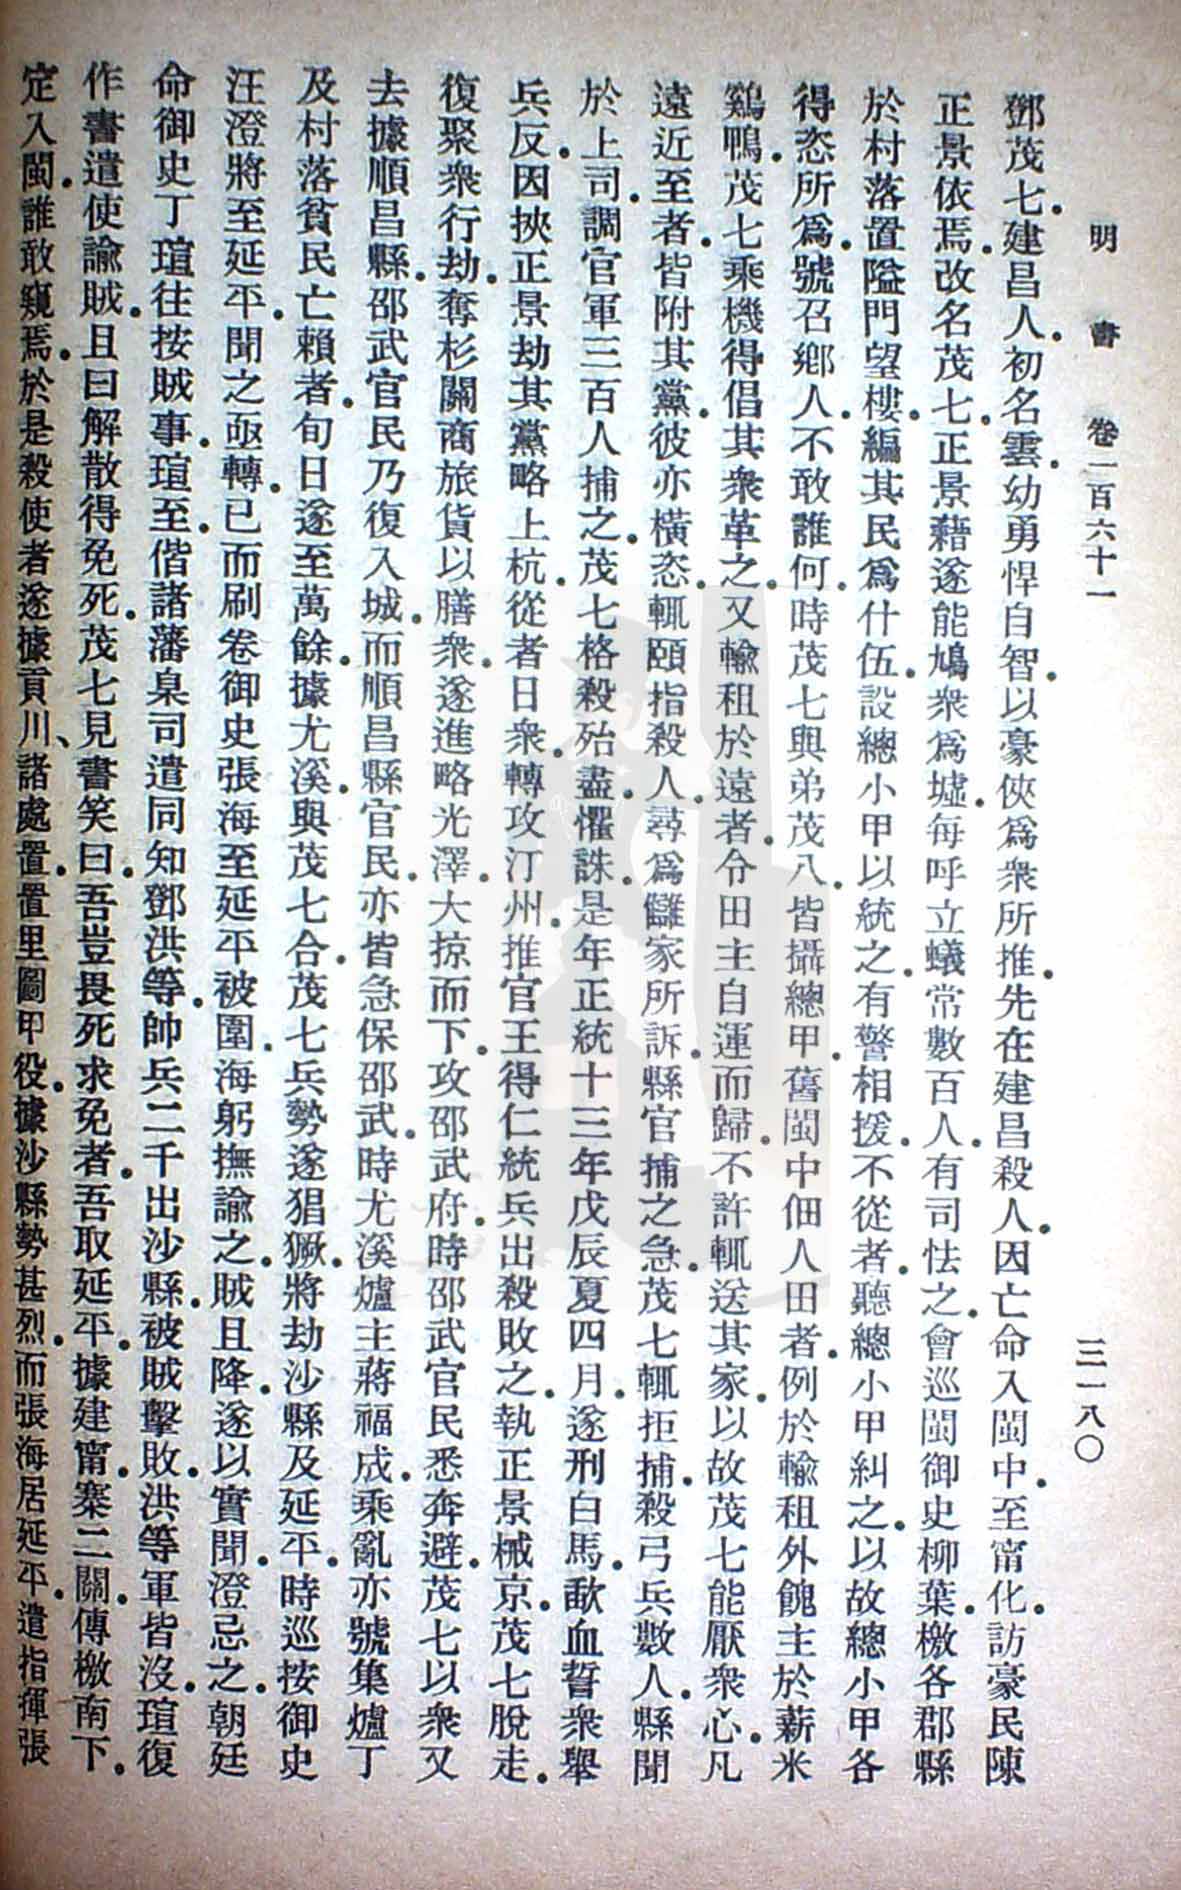 明書 卷一百六十一 三一八〇
鄧茂七。建昌人。初名雲。幼勇悍自智。以豪俠爲衆所推。先在建昌殺人。因亡命入閩中。至甯化。訪豪民陳
正景依焉。改名茂七。正景藉遂能鳩衆爲墟。每呼立蟻常數百人。有司怯之。會巡閩御史柳葉。檄各郡縣
於村落置隘門望樓。編其民爲什伍。設總小甲以統之。有警相援。不從者。聽總小甲糾之。以故總小甲各
得恣所爲。號召鄉人。不敢誰何。時茂七與弟茂八。皆攝總甲。舊閩中佃人田者。例於輸租外餽主於薪米
鷄鴨。茂七乘機得倡其衆革之。又輸租於遠者。令田主自運而歸。不許輒送其家。以故茂七能厭衆心。凡
遠近至者。皆附其黨。彼亦橫恣。輒頤指殺人。尋爲讎家所訴。縣官捕之急。茂七輒拒捕。殺弓兵數人。縣聞
於上司。調官軍三百人捕之。茂七格殺殆盡。懼誅。是年正統十三年戊辰夏四月。遂刑白馬。歃血誓衆舉
兵反。因挾正景劫其黨略上杭。從者日衆。轉攻汀州。推官王得仁統兵出殺敗之。執正景械京。茂七脫走。
復聚衆行劫。奪杉關商旅貨以膳衆。遂進略光澤。大掠而下。攻邵武府。時邵武官民悉奔避。茂七以衆又
去據順昌縣。邵武官民乃復入城。而順昌縣官民。亦皆急保邵武。時尤溪爐主蔣福成。乘亂亦號集爐丁
及村落貧民亡賴者。旬日遂至萬餘。據尤溪。與茂七合。茂七兵勢遂猖獗。將劫沙縣及延平。時巡按御史
汪澄將至延平。聞之亟轉。已而刷卷御史張海至延平被圍。海躬撫諭之。賊且降。遂以實聞。澄忌之。朝廷
命御史丁瑄往按賊事。瑄至。偕諸藩臬司遣同知鄧洪等。帥兵二千出沙縣。被賊擊敗。洪等軍皆沒。瑄復
作書遣使諭賊。且曰解散得免死。茂七見書笑曰。吾豈畏死求免者。吾取延平。據建甯。塞二關。傳檄南下。
定入閩。誰敢窺焉。於是殺使者遂據貢川、諸處置。置里圖甲役。據沙縣勢甚烈。而張海居延平。遣指揮張